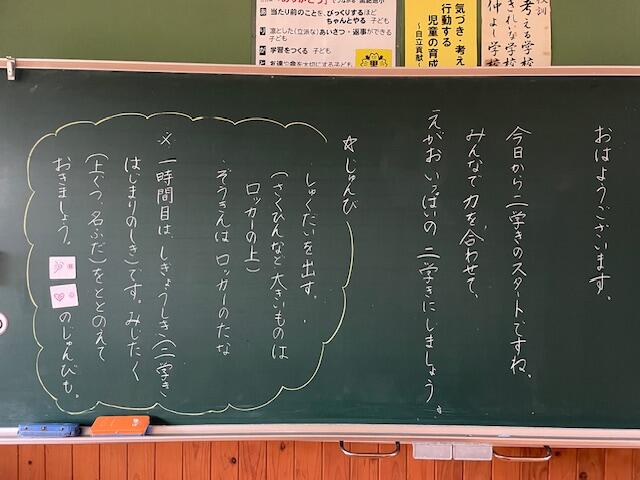 おはようございます。
今日から二学きのスタートですね。
みんなで力を合わせて、
えがおいっぱいの二学きにしましょう。
☆じゅんび
・しゅくだいを出す。
(さくひんなど大きいものは
ロッカーの上)
・ぞうきんはロッカーのたな
※一時間目は、しぎょうしき(二学き
はじまりのしき)です。みじたく
(上ぐつ、名ふだ)をととのえて
おきましょう。
のじゅんびも。
当たり前のことを、びっくりするほど
ちゃんとやる 子ども
り 凛とした(立派な)あいさつ・返事ができる
子ども
が 学習をつくる 子ども
気づき・考え
行動する
児童の育成
～自立貢献～
考える学校
きれいな学校
仲よし学校